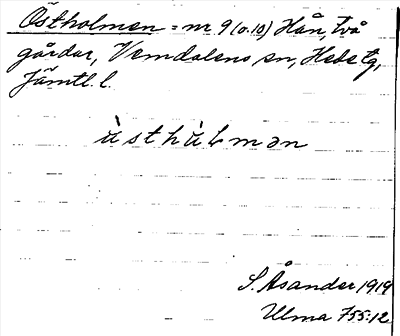 Östholmen = nr 9 (o. 10) Hån, två
gårdar, Vemdalens sn, Hede tg,
Jämtl. l.
ùsthòLmən
S. Åsander 1919
Ulma 755:12